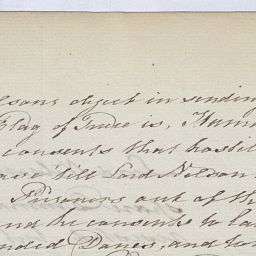 object in sending
Flag of Truce is, Human
consents that hostil
'till Lord Nelson
Prisoners out of th
he consents to la
Danes, and to